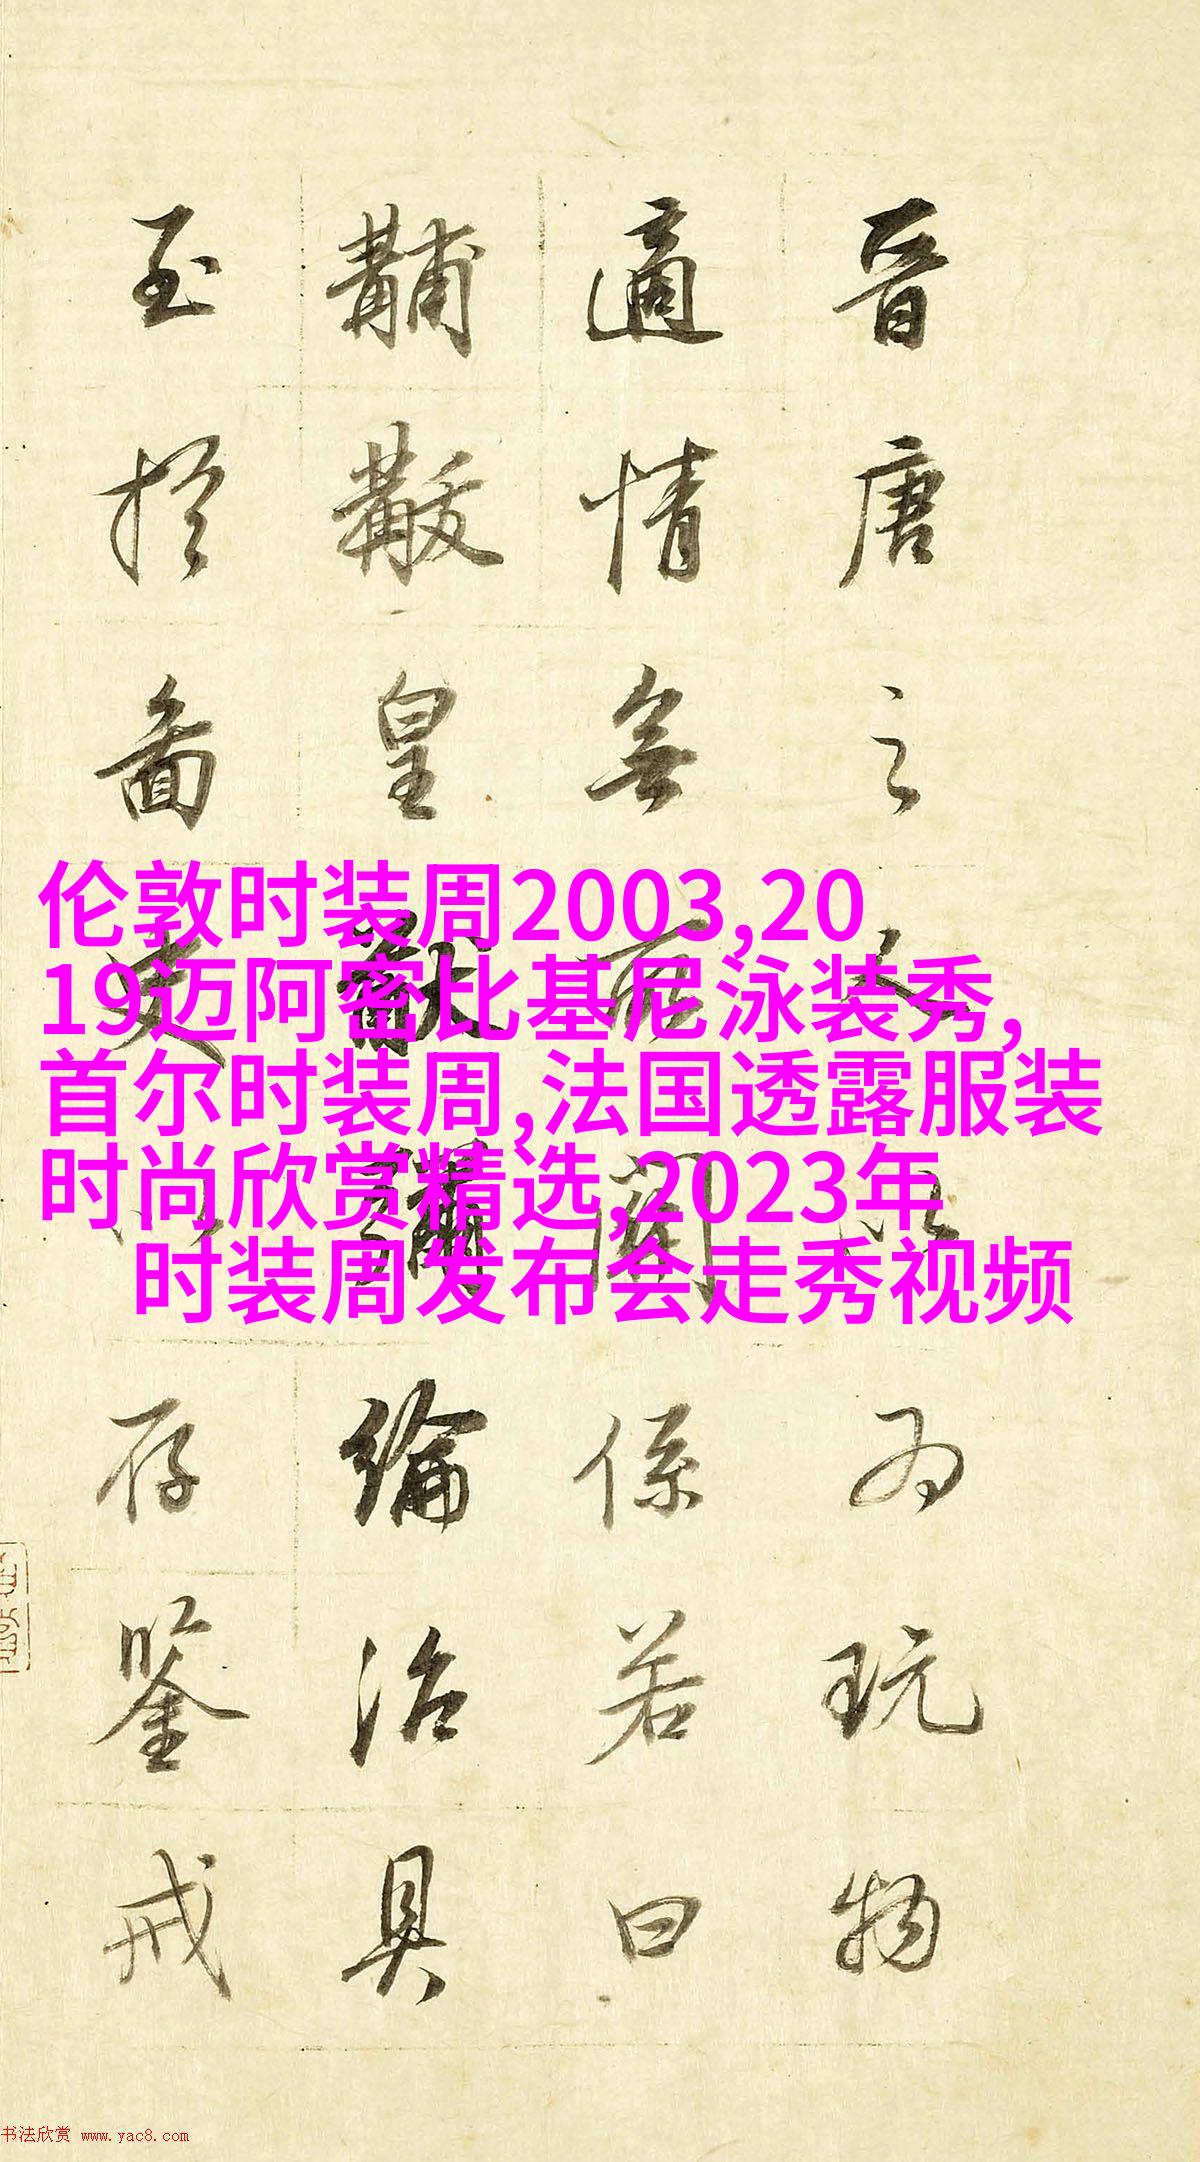 晋唐之人以为玩物
適情無関係若曰
黼黻皇猷彌綸治具
至於啚史以存鑒戒
伦敦时装周2003,20
19迈阿密比基尼泳装秀,
首尔时装周,法国透露服装
时尚欣赏精选,2023年
时装周发布会走秀视频
书法欣赏 www.yac8.com